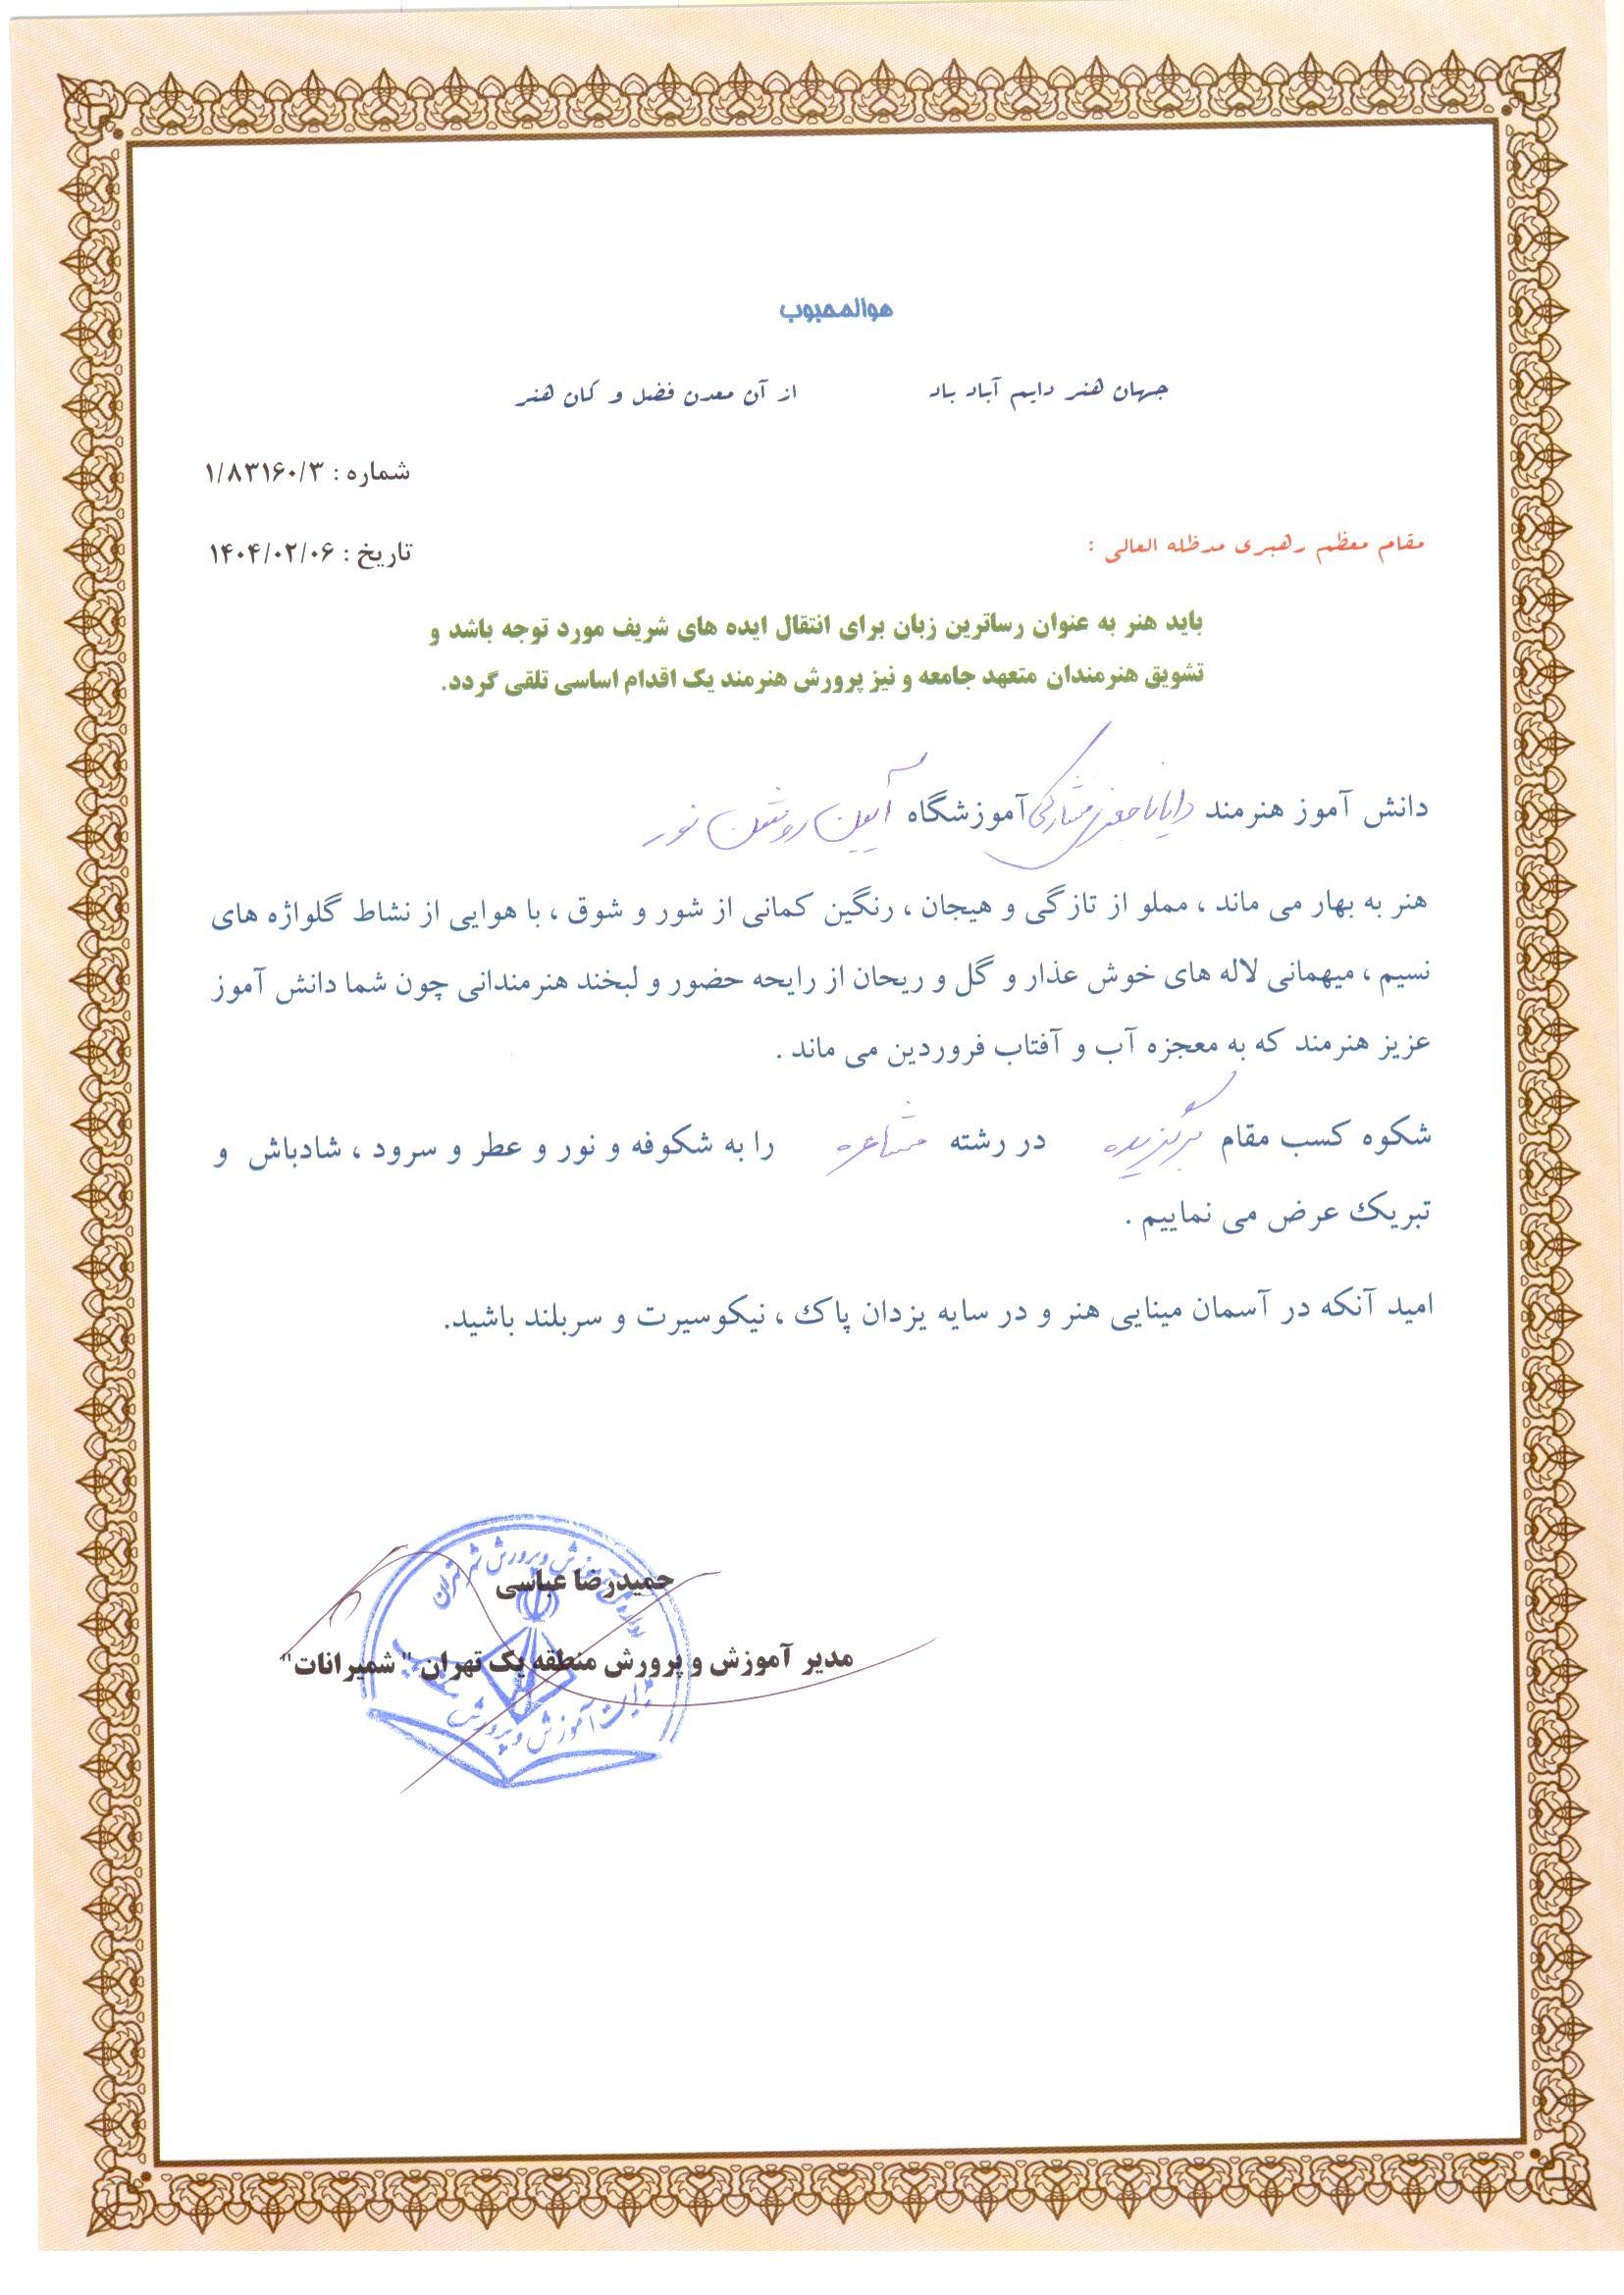 هوالمحبوب
جهان هنر دایم آباد باد از آن معدن فضل و کان هنر
شماره : ۱/۸۳۱۶۰/۳
تاریخ : ۱۴۰۴/۰۲/۰۶
مقام معظم رهبری مدظله العالی :
باید هنر به عنوان رساترین زبان برای انتقال ایده های شریف مورد توجه باشد و
تشویق هنرمندان متعهد جامعه و نیز پرورش هنرمند یک اقدام اساسی تلقی گردد.
دانش آموز هنرمند دایانا جعفری مشارکی آموزشگاه آیین روشن نور
هنر به بهار می ماند ، مملو از تازگی و هیجان ، رنگین کمانی از شور و شوق ، با هوایی از نشاط گلواژه های
نسیم ، میهمانی لاله های خوش عذار و گل و ریحان از رایحه حضور و لبخند هنرمندانی چون شما دانش آموز
عزیز هنرمند که به معجزه آب و آفتاب فروردین می ماند .
شکوه کسب مقام برگزیده در رشته مشاعره را به شکوفه و نور و عطر و سرود ، شادباش و
تبریک عرض می نماییم .
امید آنکه در آسمان مینایی هنر و در سایه یزدان پاک ، نیکوسیرت و سربلند باشید.
حمیدرضا عباسی
مدیر آموزش و پرورش منطقه یک تهران " شمیرانات"